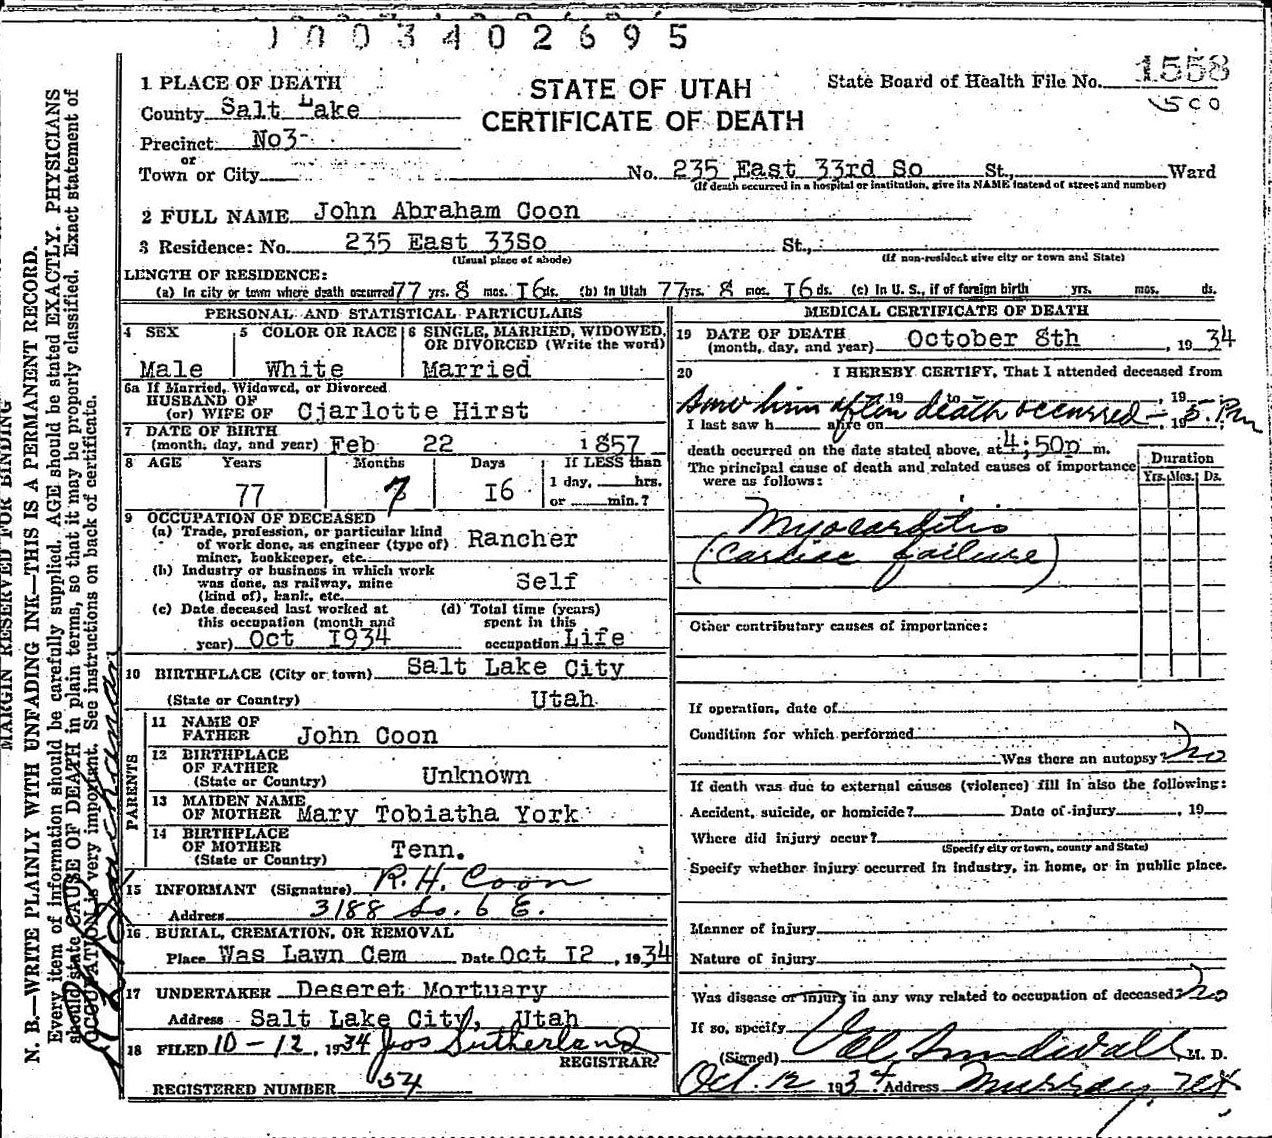 1003402695
1558
1 PLACE OF DEATH
STATE OF UTAH
State Board of Health File No.
County Salt Lake
CERTIFICATE OF DEATH
500
Precinct No3-
or
Town or City
No. 235 East 33rd So St., Ward
(If death occurred in a hospital or institution, give its NAME instead of street and number)
2 FULL NAME John Abraham Coon
3 Residence: No. 235 East 33So St.,
(Usual place of abode) (If non-resident give city or town and State)
LENGTH OF RESIDENCE:
(a) In city or town where death occurred 77 yrs. 8 mos. I6 ds. (b) In Utah 77 yrs. 8 mos. I6 ds. (c) In U. S., if of foreign birth yrs. mos. ds.
PERSONAL AND STATISTICAL PARTICULARS
4 SEX 5 COLOR OR RACE 6 SINGLE, MARRIED, WIDOWED,
OR DIVORCED (Write the word)
Male White Married
6a If Married, Widowed, or Divorced
HUSBAND OF
(or) WIFE OF Cjarlotte Hirst
7 DATE OF BIRTH
(month, day, and year) Feb 22 1857
8 AGE Years Months Days If LESS than
1 day, hrs.
77 7 I6
or min.?
9 OCCUPATION OF DECEASED
(a) Trade, profession, or particular kind
of work done, as engineer (type of) Rancher
miner, bookkeeper, etc.
(b) Industry or business in which work
was done, as railway, mine Self
(kind of), bank, etc.
(c) Date deceased last worked at (d) Total time (years)
this occupation (month and spent in this
year) Oct I934 occupation Life
10 BIRTHPLACE (City or town) Salt Lake City
(State or Country) Utah
PARENTS
11 NAME OF
FATHER John Coon
12 BIRTHPLACE
OF FATHER Unknown
(State or Country)
13 MAIDEN NAME
OF MOTHER Mary Tobiatha York
14 BIRTHPLACE
OF MOTHER Tenn.
(State or Country)
15 INFORMANT (Signature) R.H. Coon
Address 3188 So. 6 E.
16 BURIAL, CREMATION, OR REMOVAL
Place Was Lawn Cem Date Oct I2, 1934
17 UNDERTAKER Deseret Mortuary
Address Salt Lake City, Utah
18 FILED 10-12, 1934 Jos Sutherland
REGISTRAR?
REGISTERED NUMBER 54
MEDICAL CERTIFICATE OF DEATH
19 DATE OF DEATH
(month, day, and year) October 8th, 1934
20 I HEREBY CERTIFY, That I attended deceased from
, 19 to , 19
Saw him after death occurred - 5. Pm
I last saw h alive on , 19
death occurred on the date stated above, at 4;50p m.
The principal cause of death and related causes of importance
were as follows:
Duration
Yrs. Mos. Ds.
Myocarditis
(Cardiac failure)
Other contributory causes of importance:
If operation, date of
Condition for which performed
Was there an autopsy? No
If death was due to external causes (violence) fill in also the following:
Accident, suicide, or homicide? Date of injury , 19
Where did injury occur?
(Specify city or town, county and State)
Specify whether injury occurred in industry, in home, or in public place.
Manner of injury
Nature of injury
Was disease or injury in any way related to occupation of deceased? No
If so, specify
(Signed) Val Sundwall M. D.
Oct. 12 1934 Address Murray, Ut
MARGIN RESERVED FOR BINDING
N. B.—WRITE PLAINLY WITH UNFADING INK—THIS IS A PERMANENT RECORD.
Every item of information should be carefully supplied. AGE should be stated EXACTLY. PHYSICIANS
should state CAUSE OF DEATH in plain terms, so that it may be properly classified. Exact statement of
OCCUPATION is very important. See instructions on back of certificate.